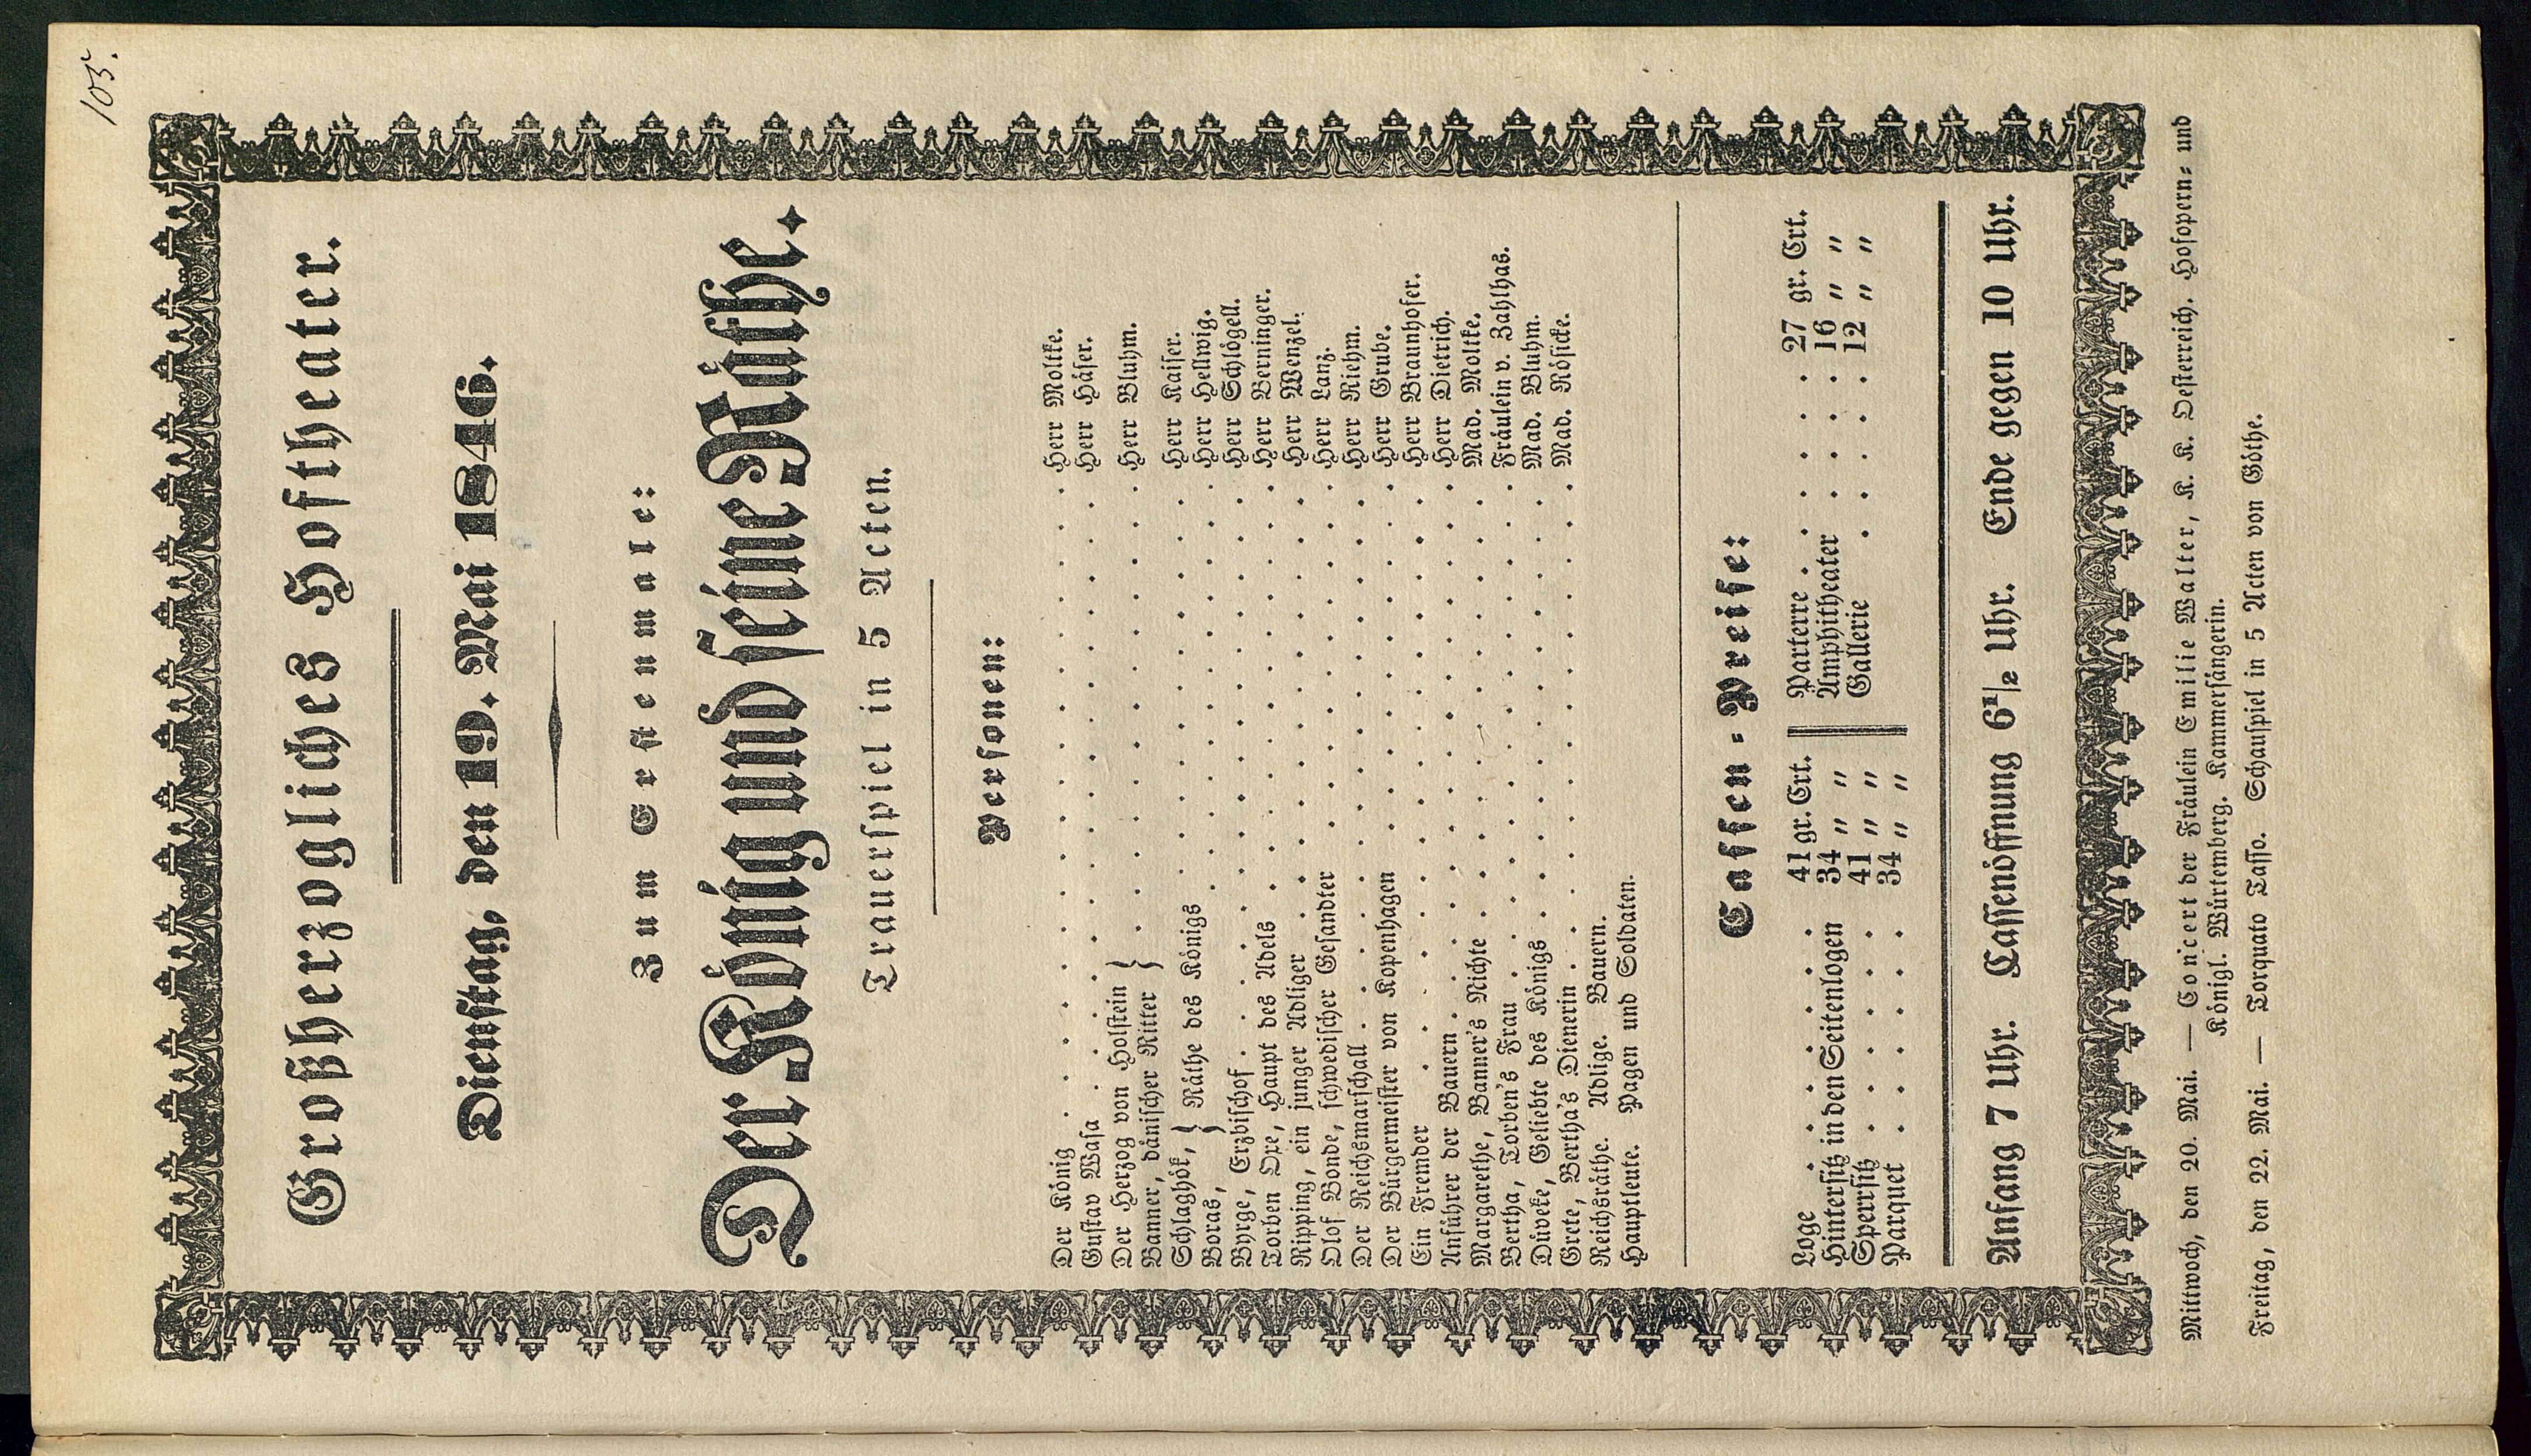 103.
Großherzogliches Hoftheater.
Dienstag, den 19. Mai 1846.
Zum Erstenmale:
Der König und seine Räthe.
Trauerspiel in 5 Acten.
Personen:
Der König . . . . . Herr Moltke.
Gustav Wasa . . . . . Herr Häser.
Der Herzog von Holstein }
Banner, dänischer Ritter } . . . . . Herr Bluhm.
Schlaghök, } Räthe des Königs . . . . . Herr Kaiser.
Boras, } . . . . . Herr Hellwig.
Byrge, Erzbischof . . . . . Herr Schlögell.
Torben Oxe, Haupt des Adels . . . . . Herr Berninger.
Ripping, ein junger Adliger . . . . . Herr Wenzel.
Olof Bonde, schwedischer Gesandter . . . . . Herr Lanz.
Der Reichsmarschall . . . . . Herr Riehm.
Der Bürgermeister von Kopenhagen . . . . . Herr Grube.
Ein Fremder . . . . . Herr Braunhofer.
Anführer der Bauern . . . . . Herr Dietrich.
Margarethe, Banner's Nichte . . . . . Mad. Moltke.
Bertha, Torben's Frau . . . . . Fräulein v. Zahlhas.
Düveke, Geliebte des Königs . . . . . Mad. Bluhm.
Grete, Bertha's Dienerin . . . . . Mad. Rösicke.
Reichsräthe. Adlige. Bauern.
Hauptleute. Pagen und Soldaten.
Cassen-Preise:
Loge . . . . . 41 gr. Crt.
Hintersitz in den Seitenlogen 34 " "
Sperrsitz . . . . . 41 " "
Parquet . . . . . 34 " "
Parterre . . . . . 27 gr. Crt.
Amphitheater . . . . 16 " "
Gallerie . . . . 12 " "
Anfang 7 Uhr. Cassenöffnung 6 1/2 Uhr. Ende gegen 10 Uhr.
Mittwoch, den 20. Mai. — Concert der Fräulein Emilie Walter, K. K. Oesterreich. Hofopern- und
Königl. Würtemberg. Kammersängerin.
Freitag, den 22. Mai. — Torquato Tasso. Schauspiel in 5 Acten von Göthe.